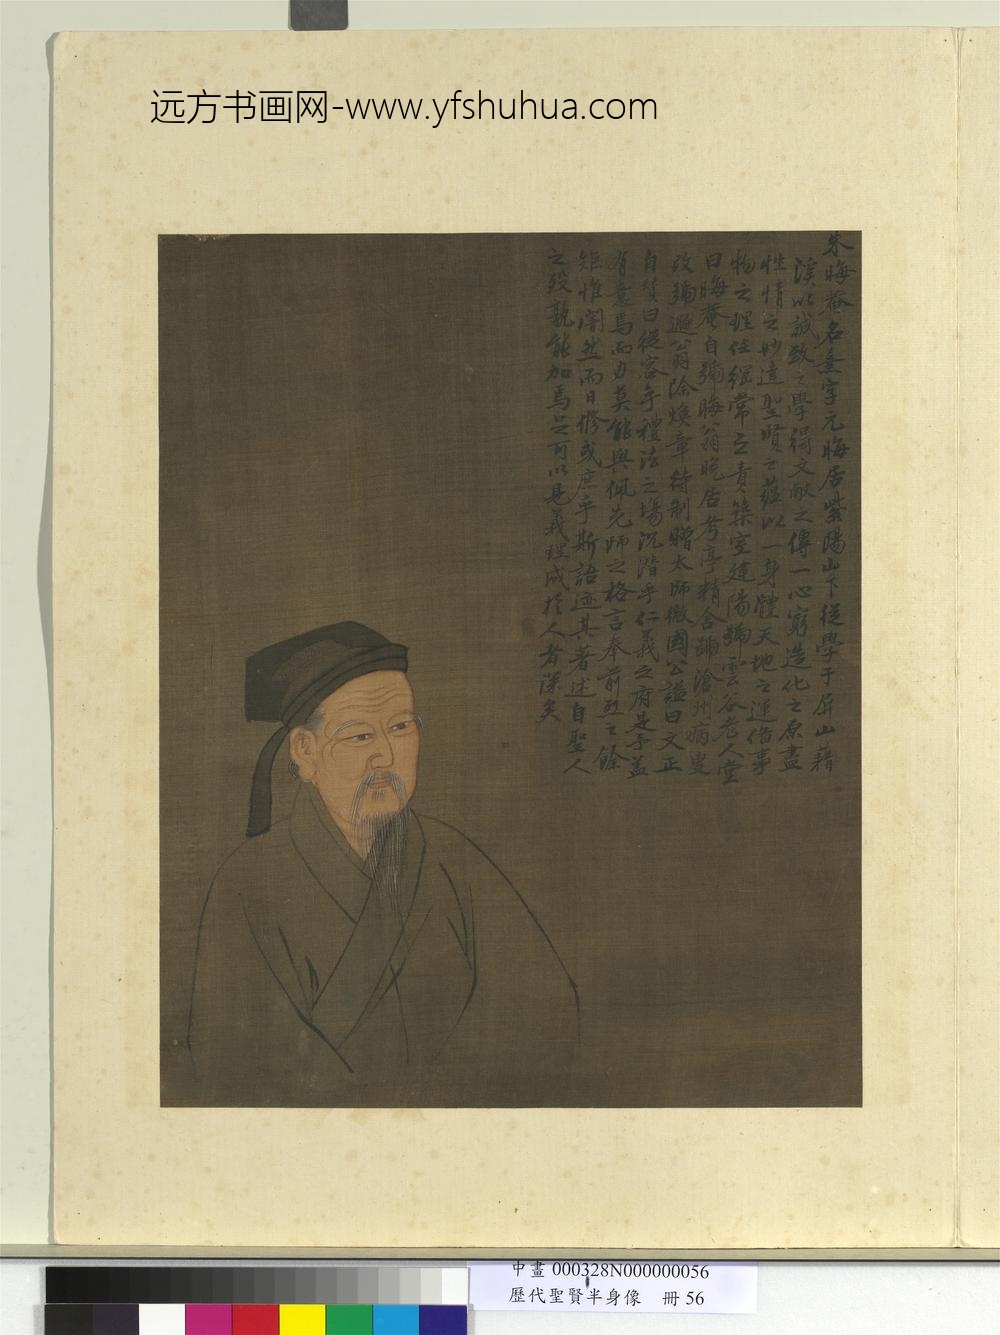 远方书画网-www.yfshuhua.com
朱晦菴名熹字元晦居紫陽山下從學于屏山藉
溪以誠敬之學得文献之傳一心窮造化之原盡
性情之妙達聖賢之蘊以一身體天地之運偹事
物之理任綱常之責築室建陽號雲谷老人堂
曰晦菴自號晦翁晚居考亭精舍號滄州病叟
改號遯翁除煥章待制贈太師徽國公謚曰文正
自贊曰從容乎禮法之場沉潛乎仁義之府是予盖
有意焉而力莫能與佩先師之格言奉前烈之餘
矩惟闇然而日修或庶乎斯語迹其著述自聖人
之歿孰能加焉是可以見義理成於人者深矣
中畫 000328N000000056
歷代聖賢半身像 冊 56